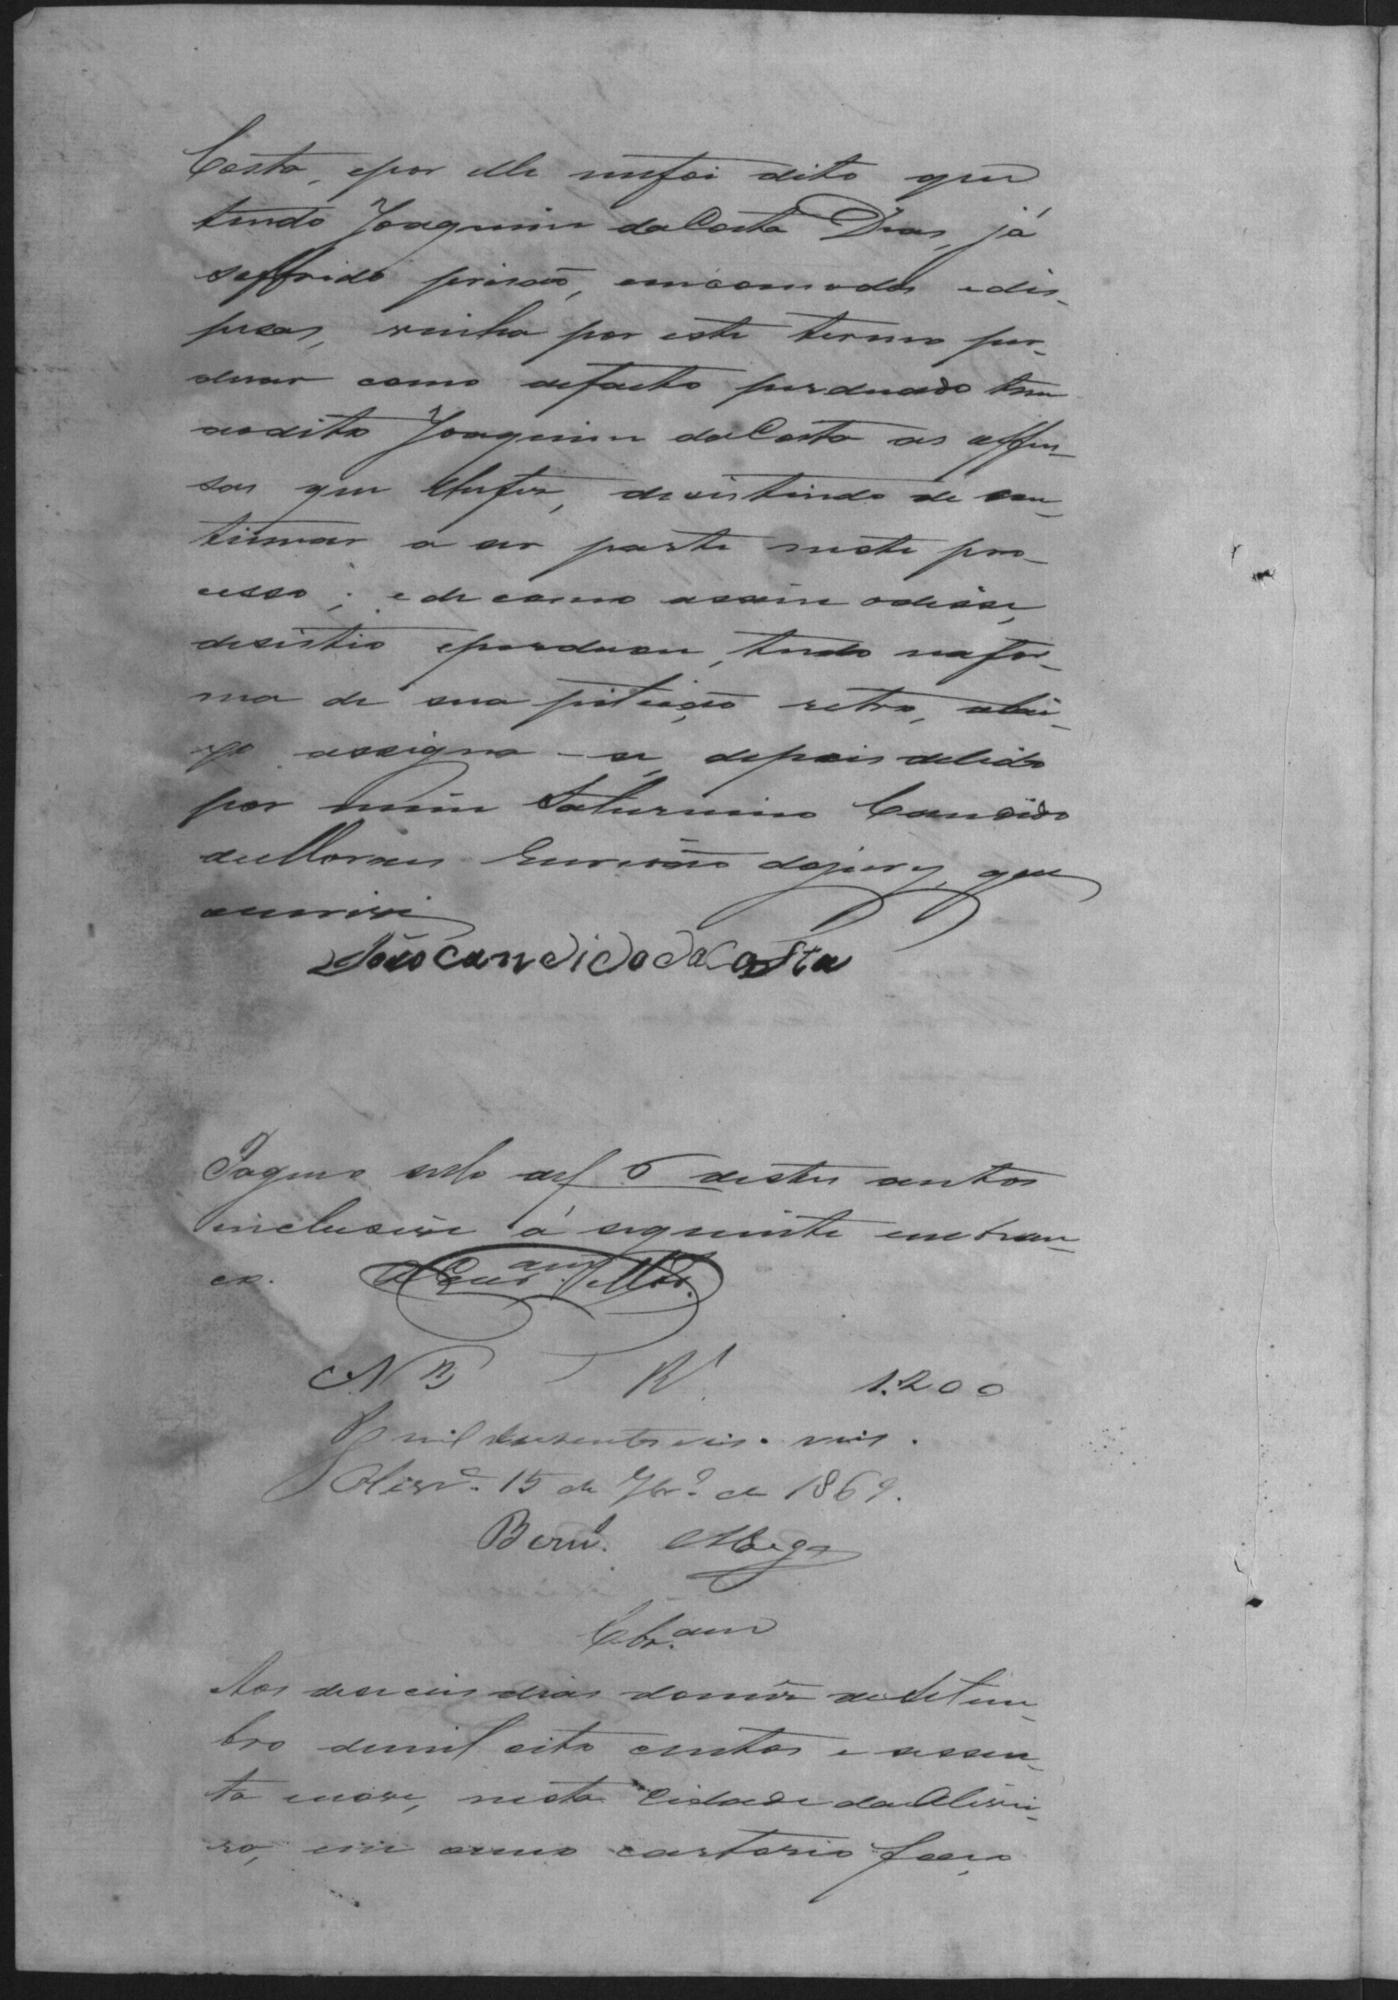 Costa, epor elle mefoi dito que
tendo Joaquim da Costa Dias, já
soffrido prisaõ, emcommodos edis-
pesas, vinha por este termo per-
doar como defacto perduado tem
aodito Joaquim da Costa as offen-
sas que lhefez, desistindo de con-
tinuar a ser parte neste pro-
cesso; e de como assim odisse,
desistio eperduou, tudo nafor-
ma de sua petiçaõ retro, abai-
xo assigna-se, depois delido
por mim Saturnino Candido
deMoraes Escrivaõ dojury, que
escrivi
João candido da Costa
Pagou sello def 6 destes autos
inclusive á seguinte embran-
co.
NB R 1.200
Pg mil duzentos reis.
Olivrª 15 de 7brº de 1869.
Cbr.am
Aos deseceis dias domêz deSetem-
bro demil oito centos e sessen-
ta enove, nesta Cidade da Olivei-
ra, em omeo cartorio faço